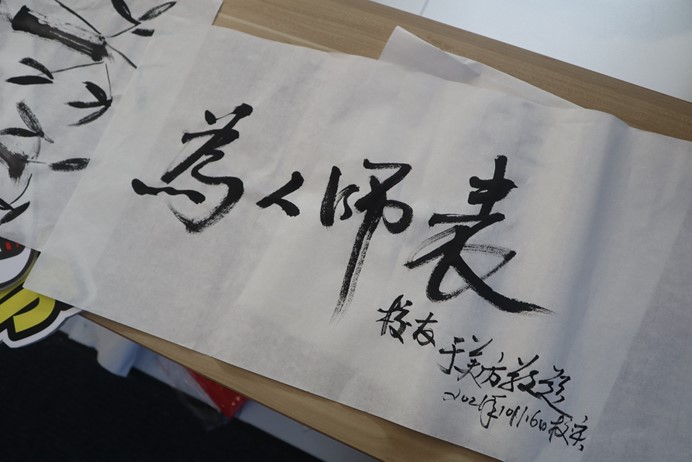 為人师表
校友 于美方敬题
2021年10月16日校庆